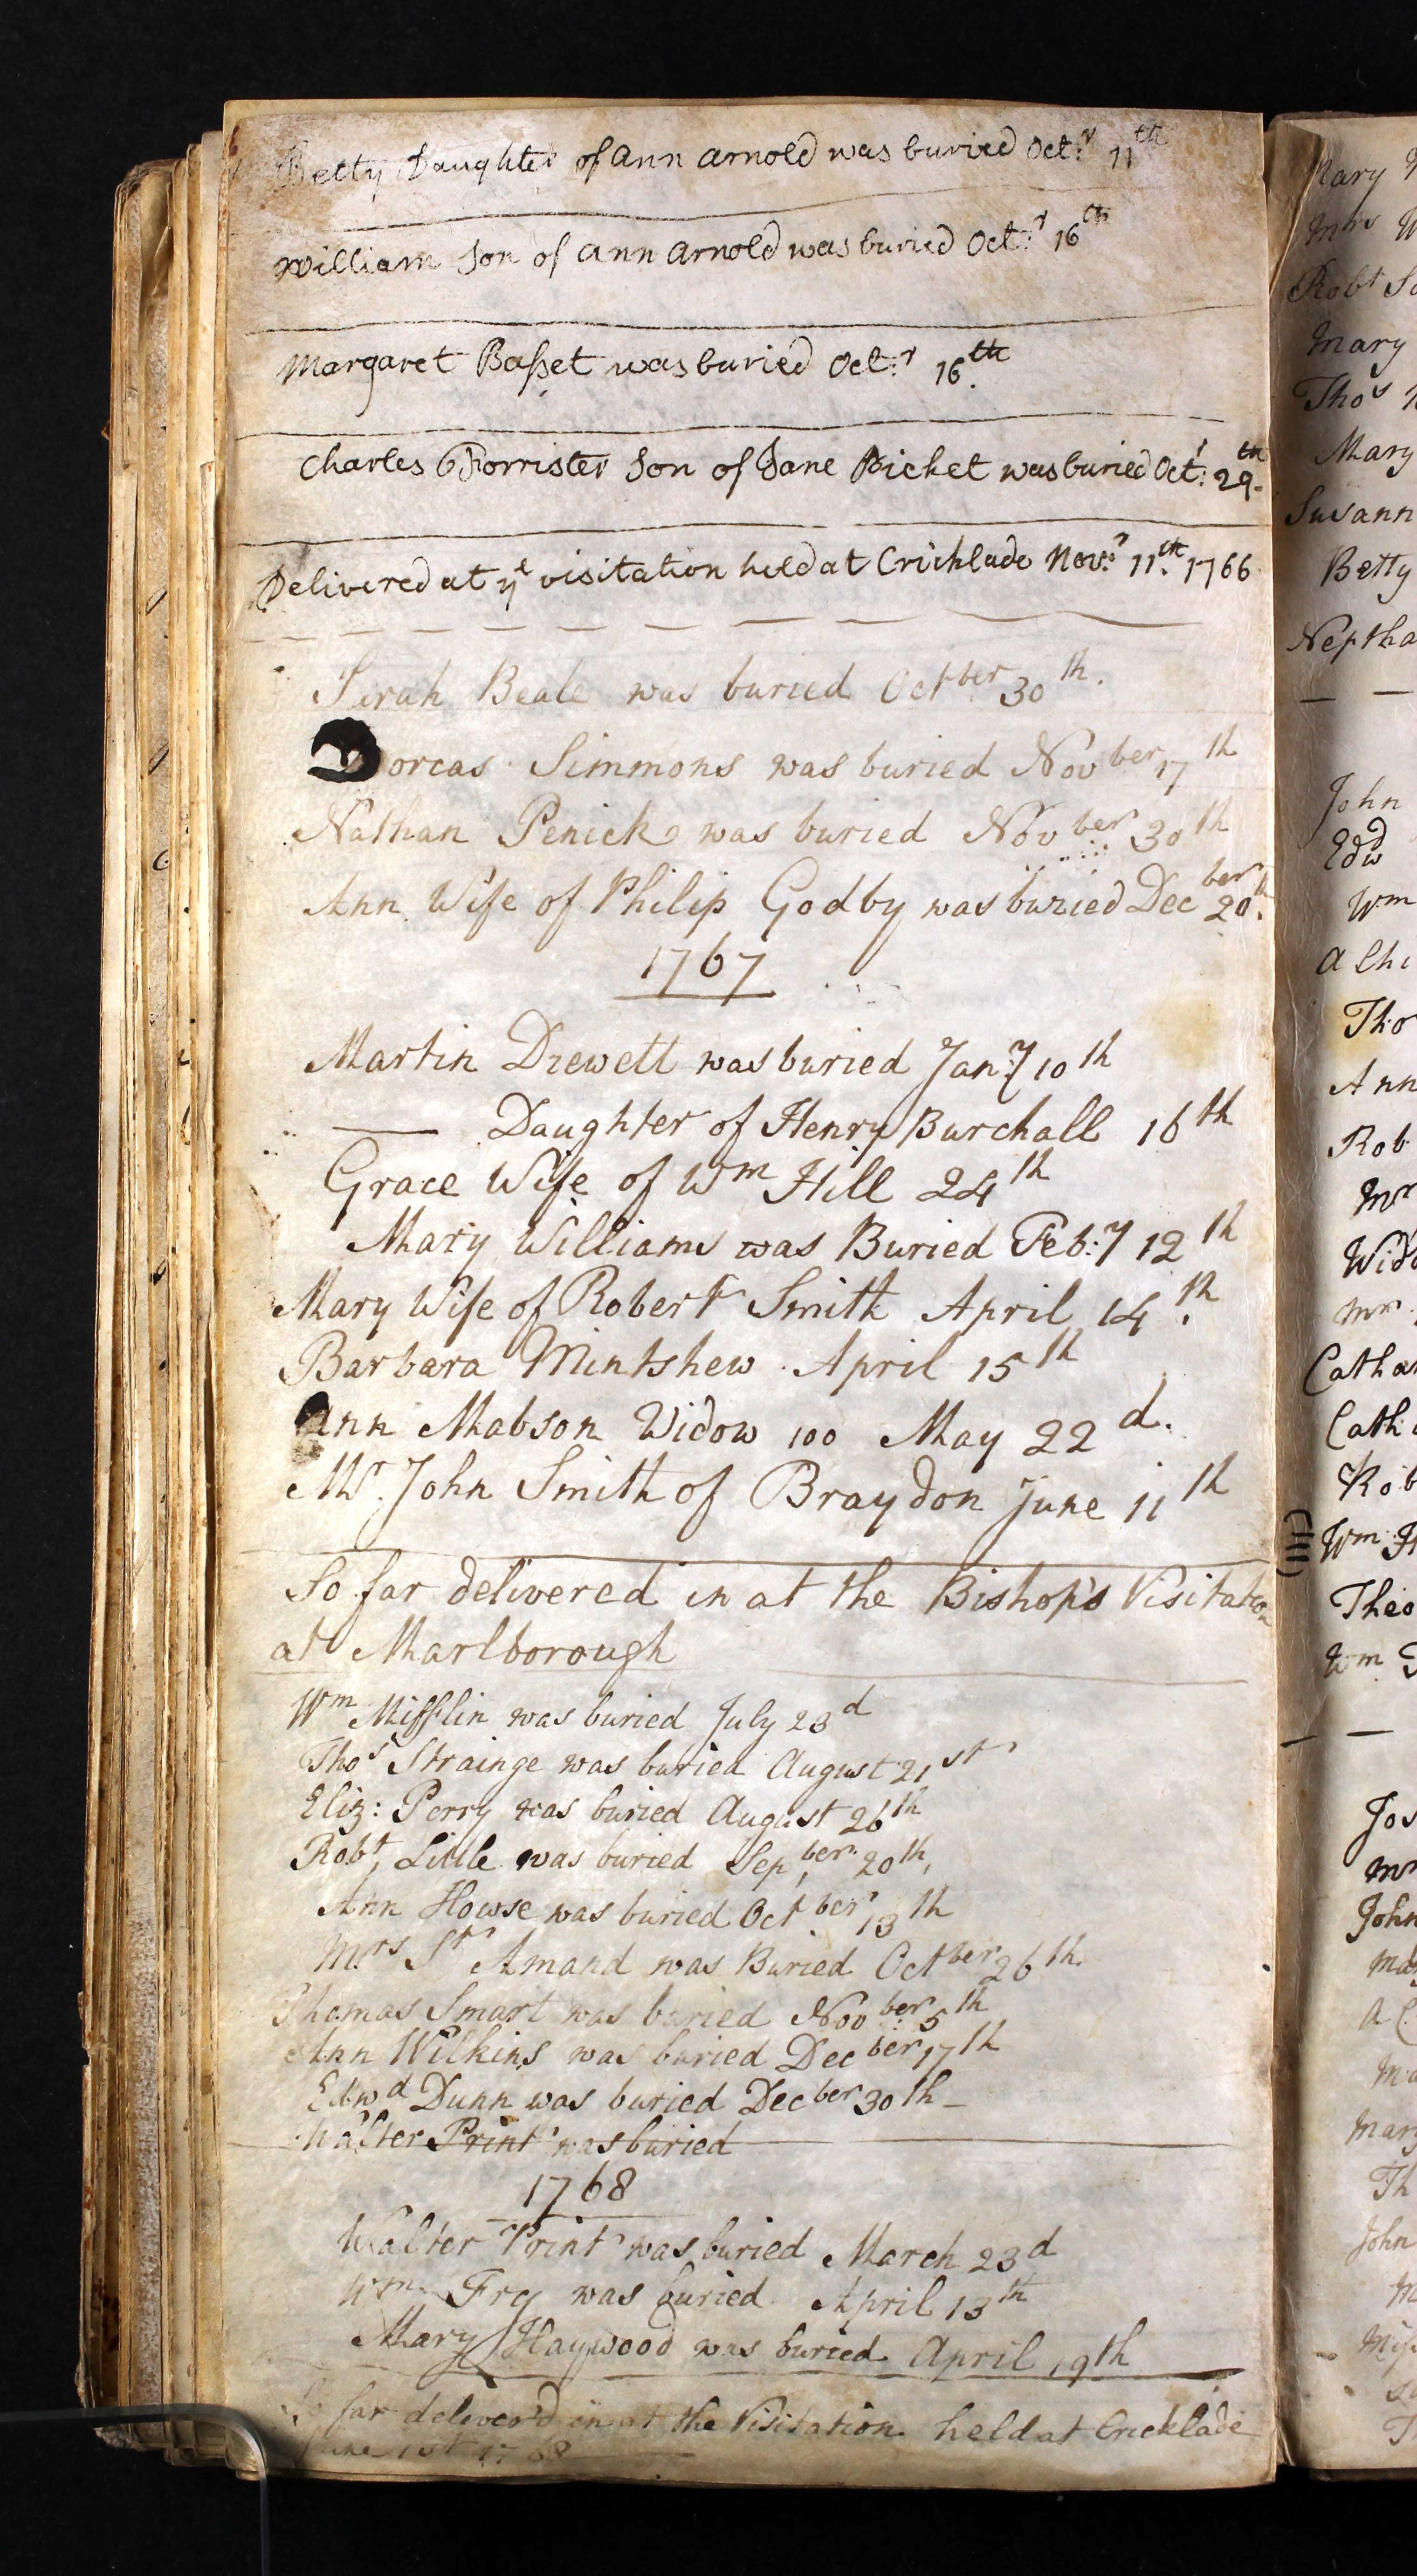 Betty Daughter of ann arnold was buried Oct:r 11th
William Son of ann arnold was buried Oct:r 16th
Margaret Baſset was buried Oct:r 16th
Charles Forrister Son of Jane Picket was buried Oct:r 29th
Delivered at ye visitation held at Cricklade Nov:r 11th 1766
Sarah Beale was buried Octber 30th.
Dorcas Simmons was buried Novber 17th
Nathan Penick was buried Novber 30th
Ann Wife of Philip Godby was buried Decber 20th.
1767
Martin Drewett was buried Jan:y 10th
—— Daughter of Henry Burchall 16th
Grace Wife of Wm Hill 24th
Mary Williams was Buried Feb:y 12th
Mary Wife of Robert Smith April 14th.
Barbara Mintshew April 15th
Ann Mabson Widow 100 May 22d.
Mr. John Smith of Braydon June 11th
So far delivered in at the Bishop's Visitation
at Marlborough
Wm Mifflin was buried July 23d
Thos Strainge was buried August 21st
Eliz: Perry was buried August 26th
Robt Little was buried Sepber 20th,
Ann Howse was buried Octber 13th
Mrs St Amand was Buried Octber 26th.
Thomas Smart was buried Novber 5th
Ann Wilkins was buried Decber 17th
Edwd Dunn was buried Decber 30th
Walter Print was buried
1768
Walter Print was buried March 23d
Wm Fry was buried April 13th
Mary Haywood was buried April 19th
So far deliver'd in at the Visitation held at Cricklade
June 1st 1768
Mary
Mrs W
Robt
Mary
Thos
Mary
Susann
Betty
Neptha
John
Edwd
Wm
a Chi
Tho
Ann
Rob
Mr
Wido
Mrs
Catha
Cath
Rob
Wm
Theo
Wm
Jos
John
Mary
Th
John